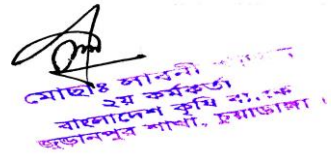 মোছাঃ লাবনী
২য় কর্মকর্তা
বাংলাদেশ কৃষি ব্যাংক
শাখা, চুয়াডাঙ্গা।